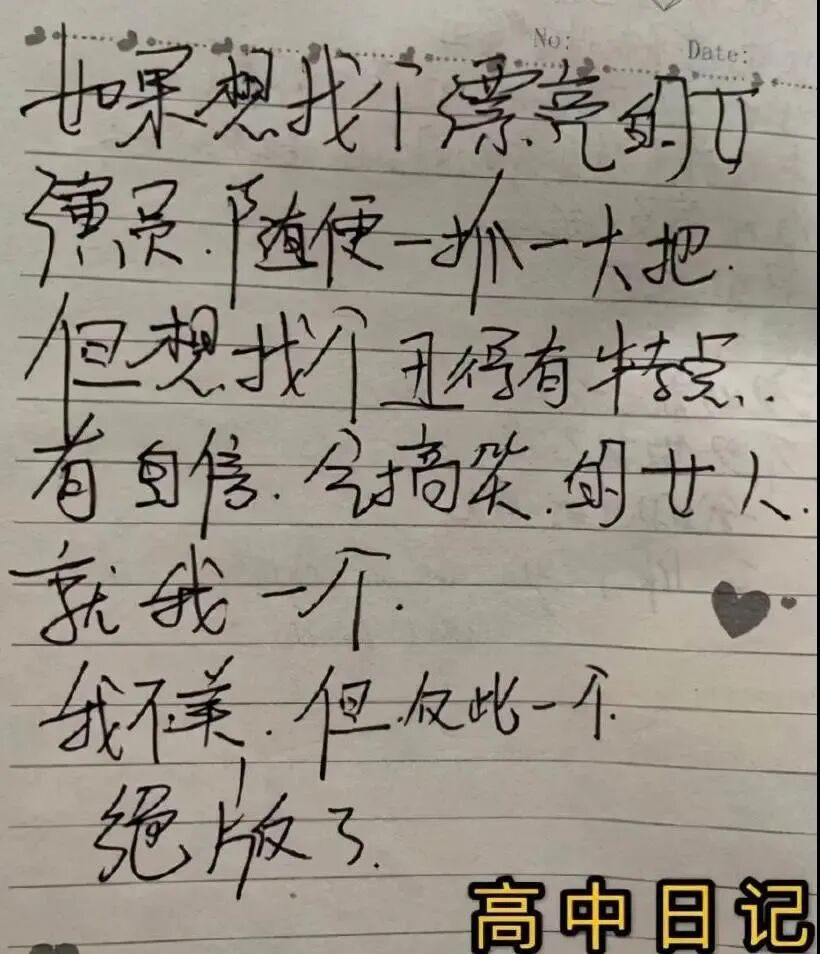 No:
Date:
如果想找个漂亮的女
演员.随便一抓一大把.
但想找个丑得有特点..
有自信.会搞笑.的女人.
就我一个.
我不美.但.仅此一个.
绝版了.
高中日记